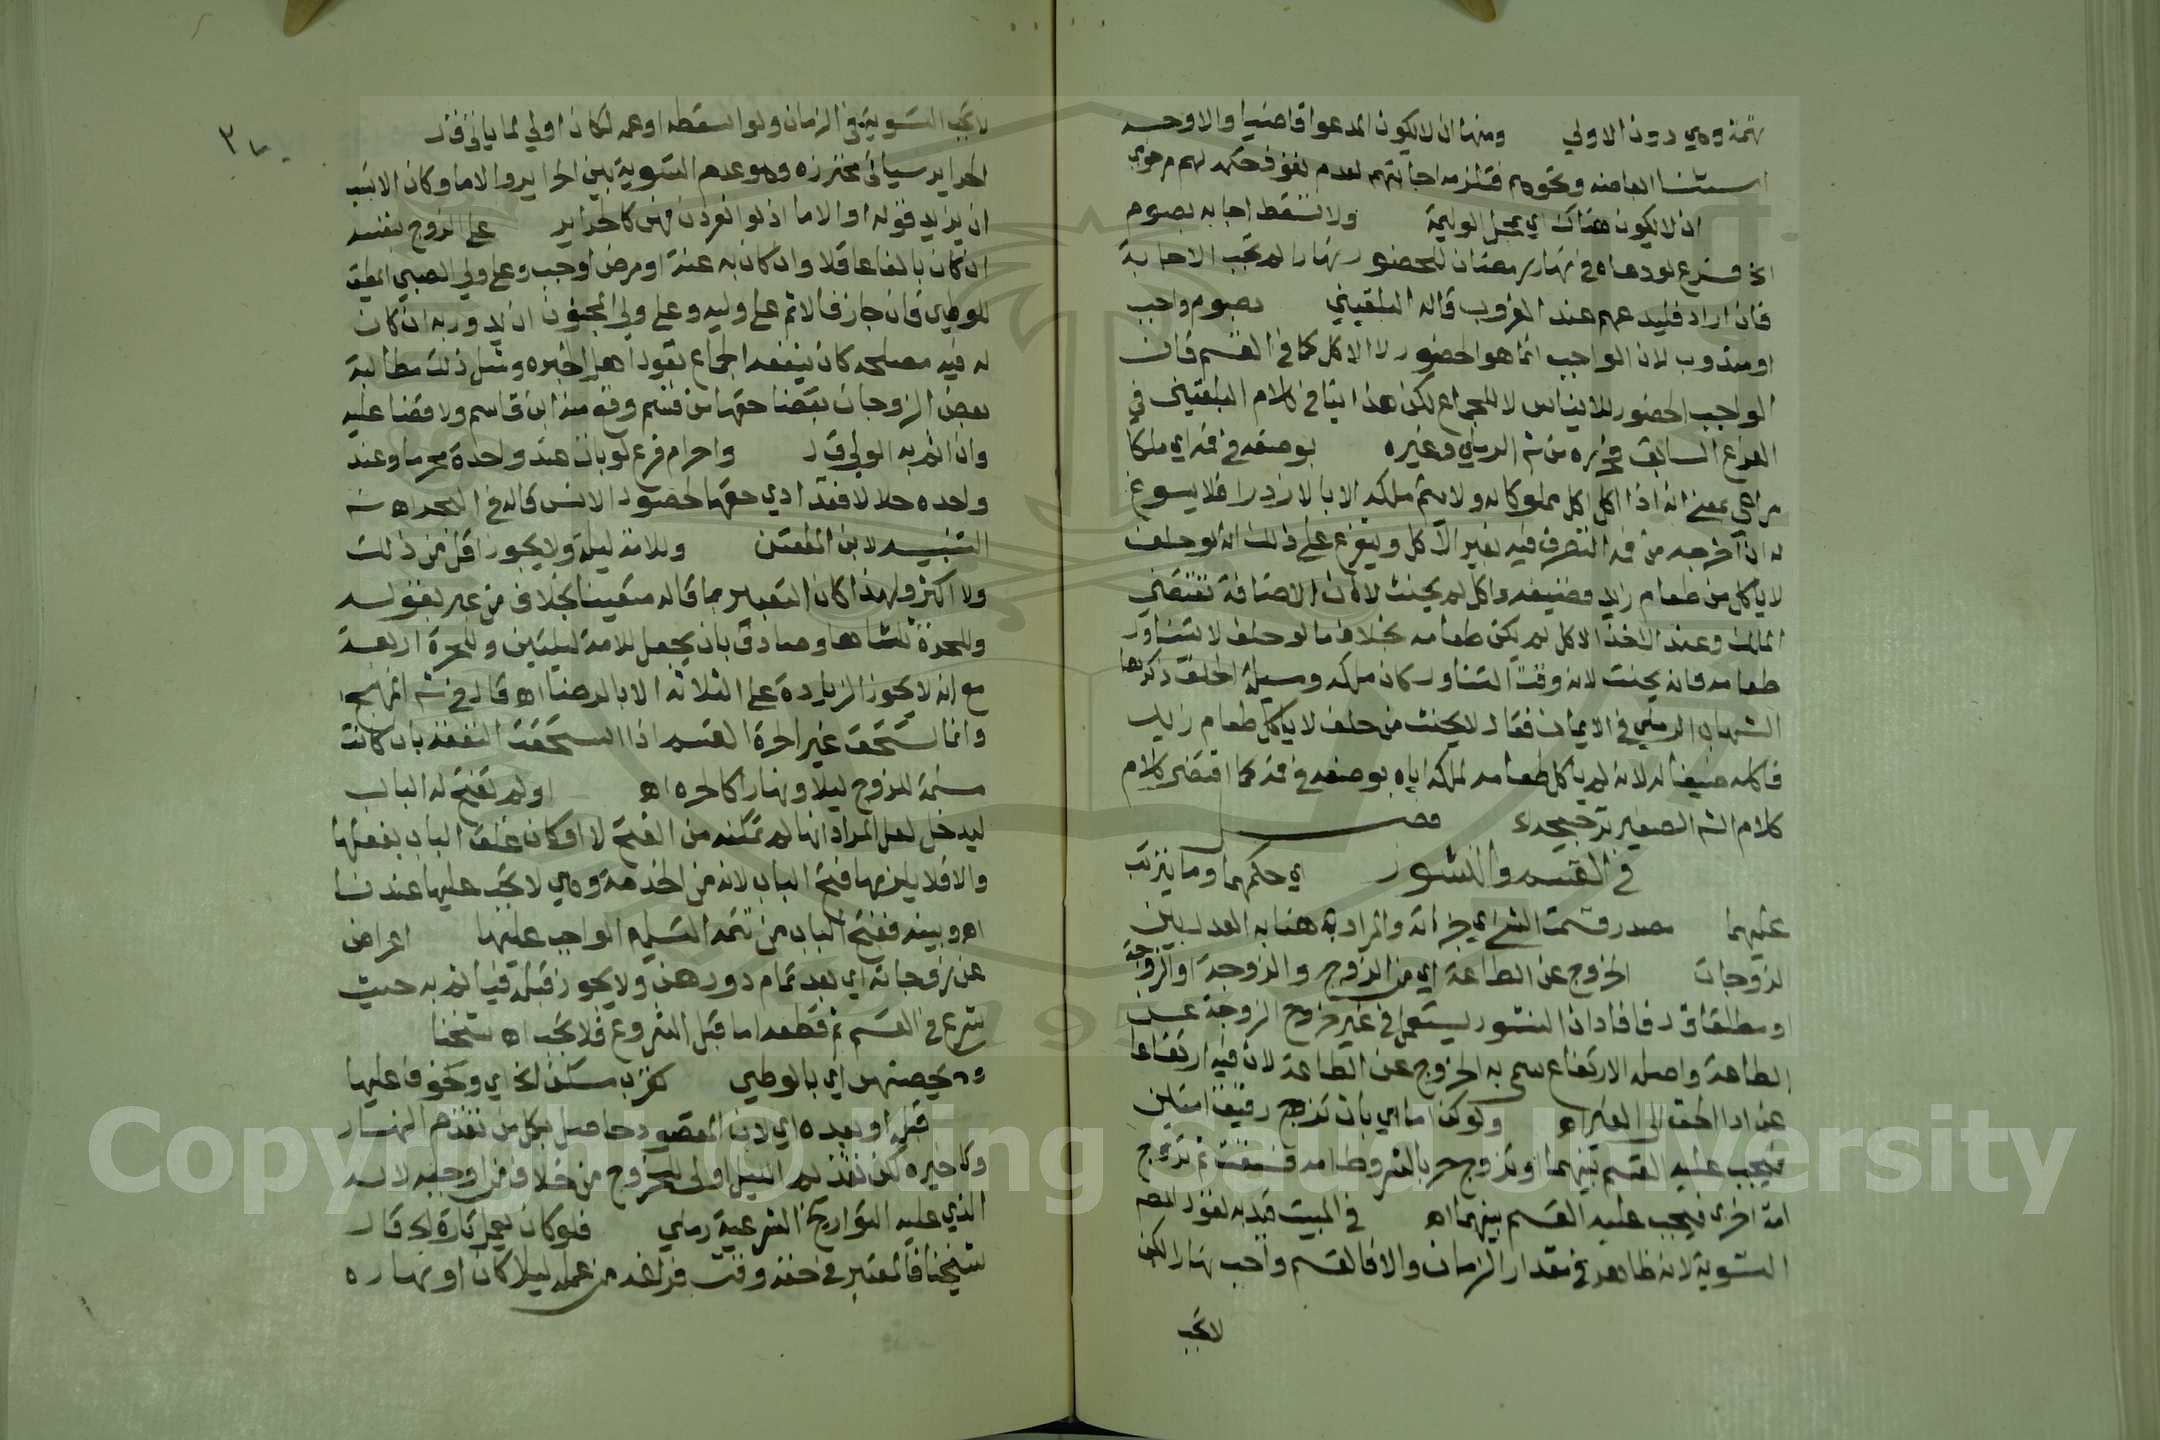 تهمة وهي دون الاولي ومنها ان لا يكون المدعوا قاضيا والاوجه
استثنا ابعاضه ونحوهم فتلزمه اجابتهم لعدم نفوذ حكمه لهم مرحومي
ان لا يكون هناك اي بمحل الوليمة ولا تسقط اجابه بصوم
الخ فرع لو دعاه في نهار رمضان للحضور نهارا لم تجب الاجابة
فان اراد فليدعهم عند الغروب قاله البلقيني بصوم واجب
او مندوب لان الواجب انما هو الحضور لا الاكل كما في القسم فان
الواجب الحضور للايناس لا للجماع لكن هذا ينافي كلام البلقيني في
الفرع السابق في شم الرملي وغيره بوضعه في فمه اي ملكا
مراعى بمعنى انه اذا اكل اكل مملوكا له ولا يتم ملكه الا بالازدراد فلا يسوغ
له ان اخرجه من فمه التصرف فيه بغير الاكل ويتفرع على ذلك انه لو حلف
لا ياكل من طعام زيد فضيفه واكل لم يحنث لان الاضافة تقتضي
الملك وعند الاخذ للاكل لم يكن طعامه بخلاف ما لو حلف لا يتناول
طعامه فانه يحنث لانه وقت التناول كان ملكه ومسيلة الحلف ذكرها
الشهاب الرملي في الايمان فقال لا يحنث من حلف لا ياكل طعام زيد
فاكله ضيفا له لانه لم ياكل طعامه لملكه اياه بوضعه في فمه كما اقتضى كلام
كلام الشم الصغير ترجيحه اه فصل
في القسم والنشوز اي حكمهما وما يترتب
عليهما مصدر قسمت الشي اي جزاته والمراد به هنا به العدل بين
الزوجات الخروج عن الطاعة اي من الزوج والزوجة او الزوجة
او مطلقا ق ل فافاد ان النشوز يستعمل في غير خروج الزوجة عن
الطاعة واصله الارتفاع سمي به الخروج عن الطاعة لان فيه ارتفاعا
عن ادا الحق الى الغير اه ولو كن اما اي بان تزوج رقيق امتين
فيجب عليه القسم بينهما او تزوج حر بالشروط امة فسفت ثم تزوج
امة اخرى فيجب عليه القسم بينهما اه في المبيت قيد به لقول المص
التسوية لانه ظاهر في مقدار الزمان والا فالقسم واجب نهارا لكن
لا تجب
لا تجب التسوية في الزمان ولو اسقطه او عمه لكان اولي لما ياتي ق ل
الحراير سياتي محترزه وهو عدم التسوية بين الحراير والاما وكان الانسب
ان يزيد قوله او الاما اذ لو انفردن فهن كالحراير على الزوج بنفسه
ان كان بالغا عاقلا وان كان به عنة او مرض او جب وعلى ولي الصبي المطيق
للوطي فان جار فالاثم على وليه وعلى ولي المجنون ان يدور به ان كان
له فيه مصلحه كان ينفعه الجماع بقول اهل الخبره ومثل ذلك مطالبة
بعض الزوجات بقضا حقها من قسم وقع منه ابن قاسم ولا قضا عليه
وان اثم به الولي ق ل واحرام فرع لو بات عند واحدة محرما وعند
واحده حلالا فقد ادي حقها لحصول الانس قاله في البحر اه شم
التنبيه لابن الملقن وللامة ليلة ولا يجوز اقل من ذلك
ولا اكثر ولهذا كان التعبير بما قاله متعينا بخلاف من عبر بقوله
وللحرة مثلاها وصادق بان يجعل للامة ليلتين وللحرة اربعة
مع انه لا يجوز الزيادة على الثلاثة الا بالرضا اه قال في شم المنهج
وانما تستحق غير الحرة القسم اذا استحقت النفقة بان كانت
مسلمة للزوج ليلا ونهارا كالحره اه او لم تفتح له الباب
ليدخل لعل المراد انها لم تمكنه من الفتح لا او كان غلق الباب بفعلها
والا فلا يلزمها فتح الباب لانه من الخدمة وهي لا تجب عليها عندنا
اه وبينه ففتح الباب من تتمة التسليم الواجب عليها اعراض
عن زوجاته اي بعد تمام دورهن ولا يجوز قبله فياثم به حيث
شرع في القسم ثم قطعه اما قبل الشروع فلا يجب اه شيخنا
ويحصنهن اي بالوطي كقرب مسكن الخ اي وخوف عليها
قبل او بعده اي لان المقصود حاصل بكل من تقدم النهار
وتاخيره لكن تقديم الليل اولى للخروج من خلاف من اوجبه لانه
الذي عليه التواريخ الشرعية رملي فلو كان يعمل تارة الخ قال
شيخنا فالمعتبر في حقه وقت فراغه من عمله ليلا كان او نهاره